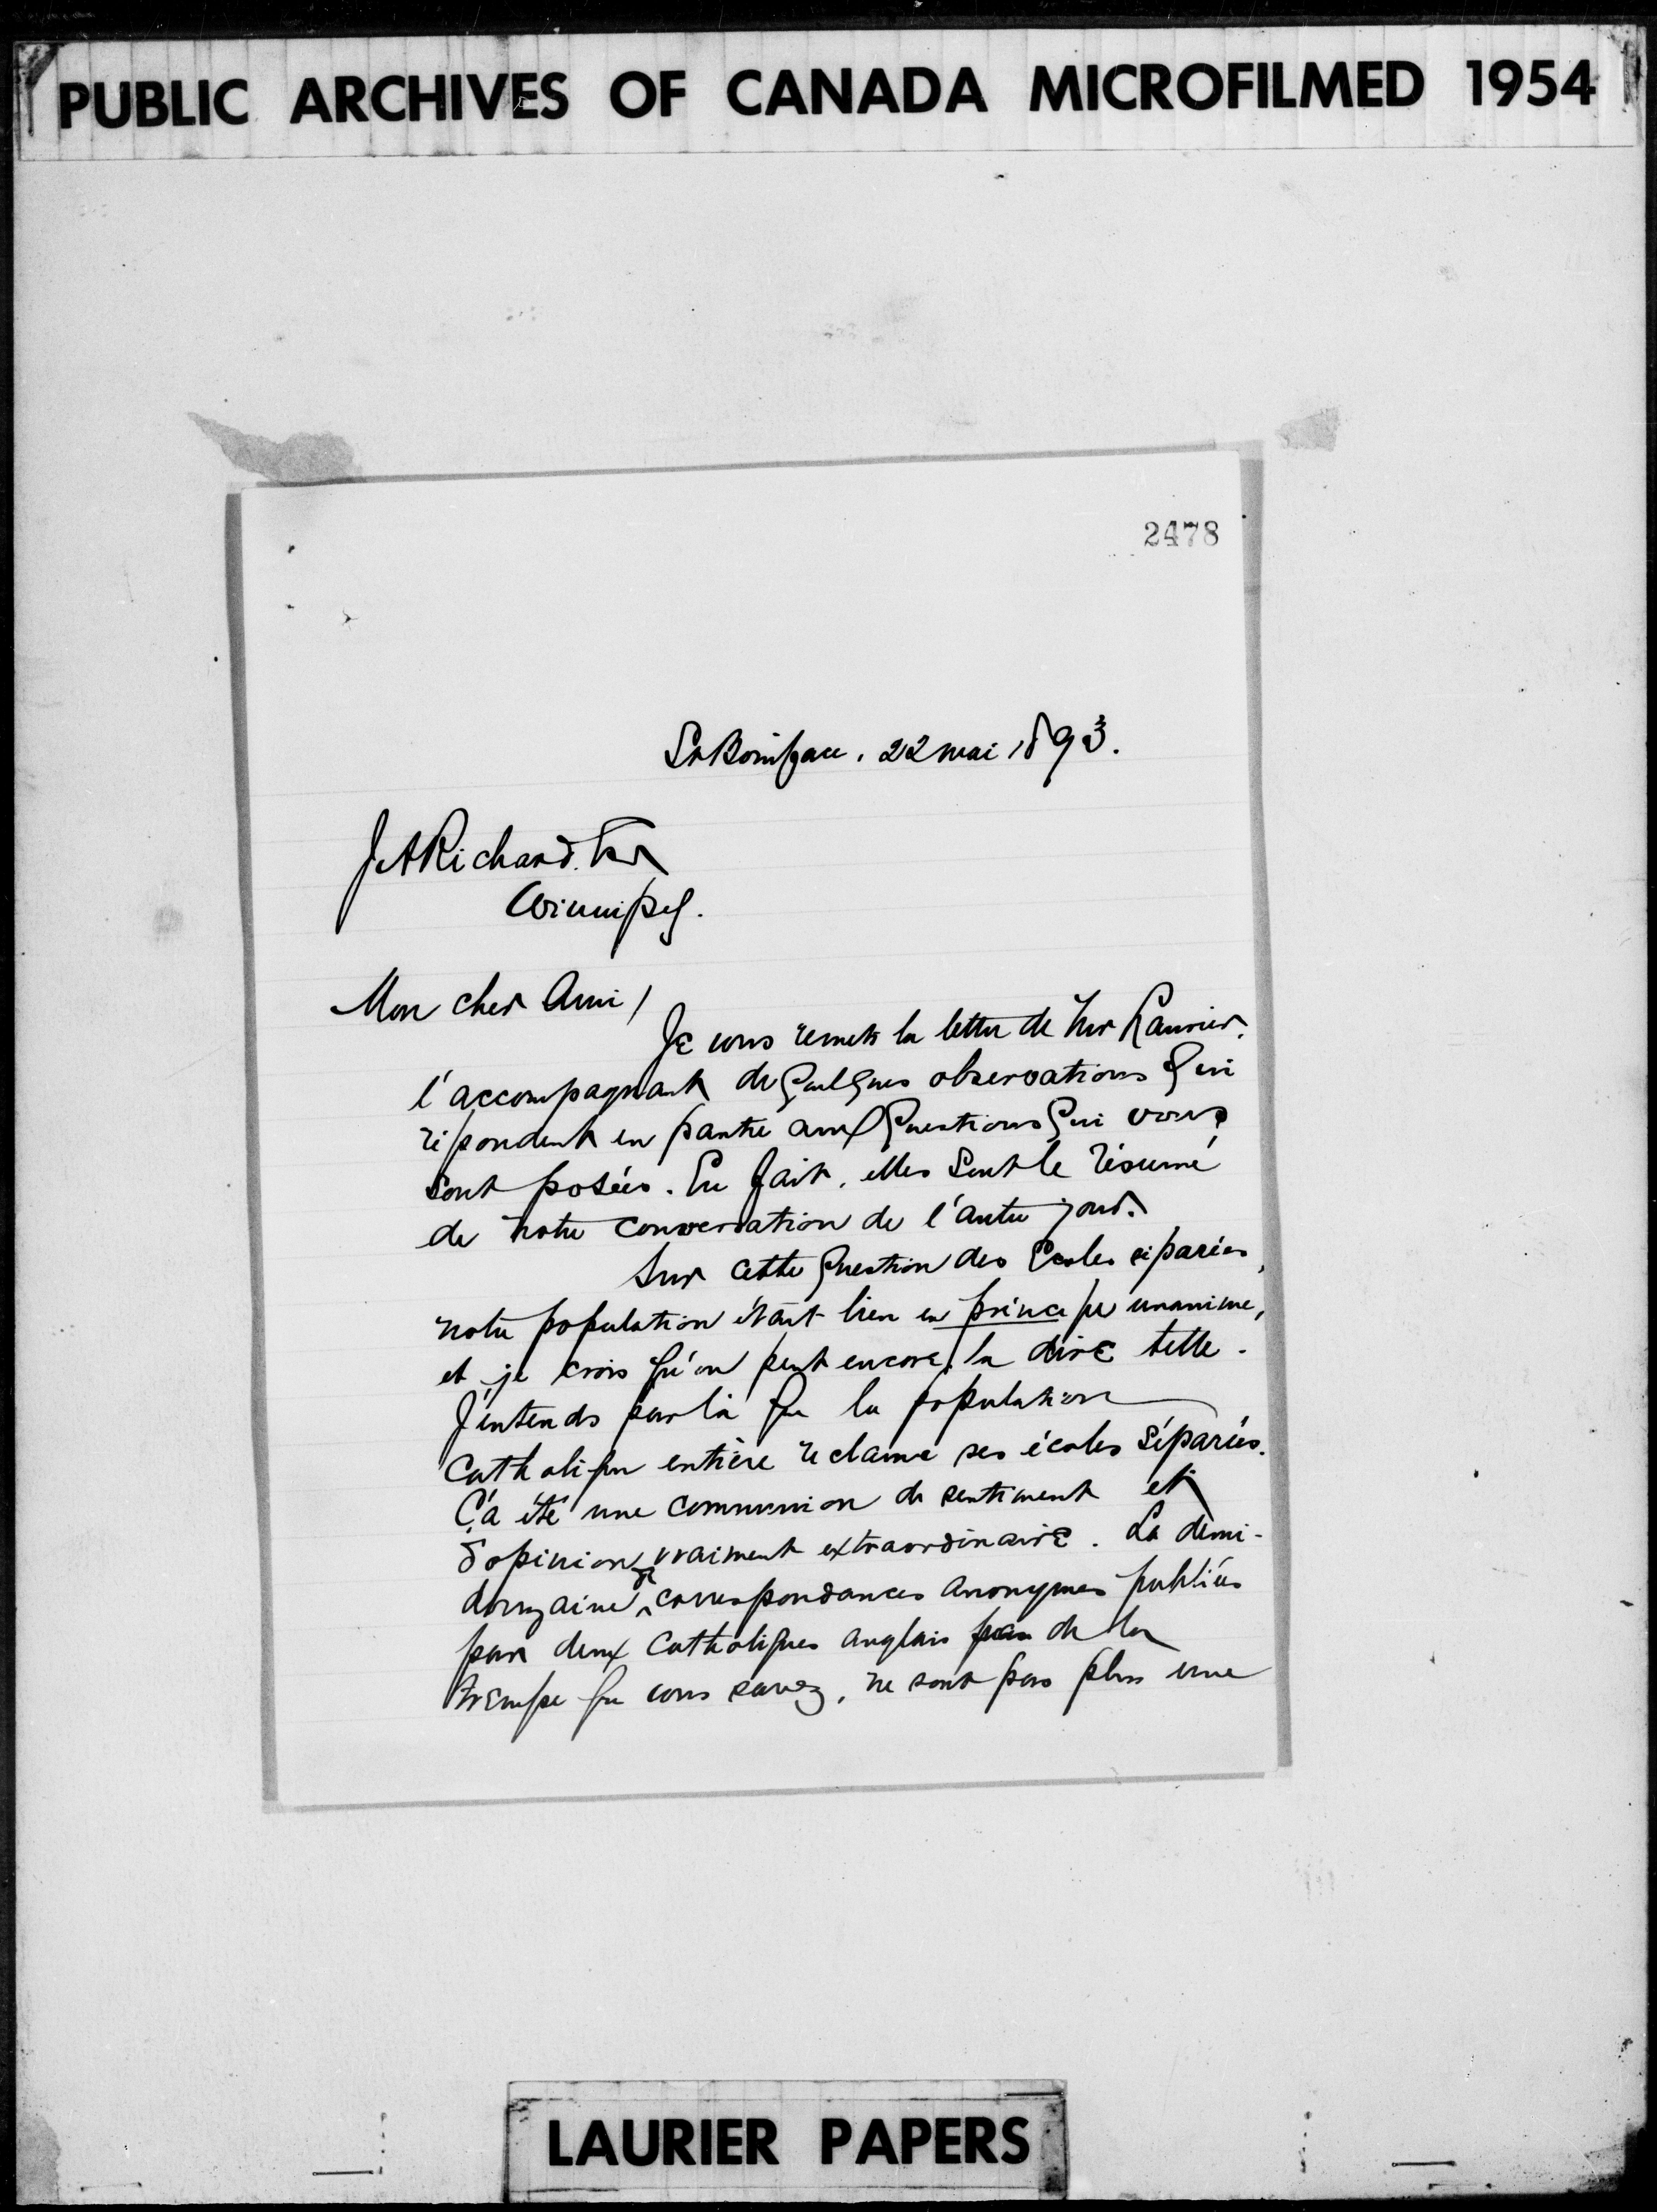 PUBLIC ARCHIVES OF CANADA MICROFILMED 1954
2478
St Boniface. 22 mai 1893.
J A Richard.
Winnipeg.
Mon cher Ami,
Je vous remets la lettre de Mr Laurier.
l'accompagnant de quelques observations qui
répondent en partie aux questions qui vous
sont posées. En fait, elles sont le résumé
de notre conversation de l'autre jour.
Sur cette question des Ecoles séparées,
notre population était bien en principe unanime,
et je crois qu'on peut encore la dire telle.
J'entends par là que la population
Catholique entière réclame ses écoles séparées.
Ç'a été une communion de sentiment et
d'opinion vraiment extraordinaire. La demi-
douzaine de correspondances anonymes publiées
par deux Catholiques anglais de la
trempe que vous savez, ne sont pas plus une
LAURIER PAPERS